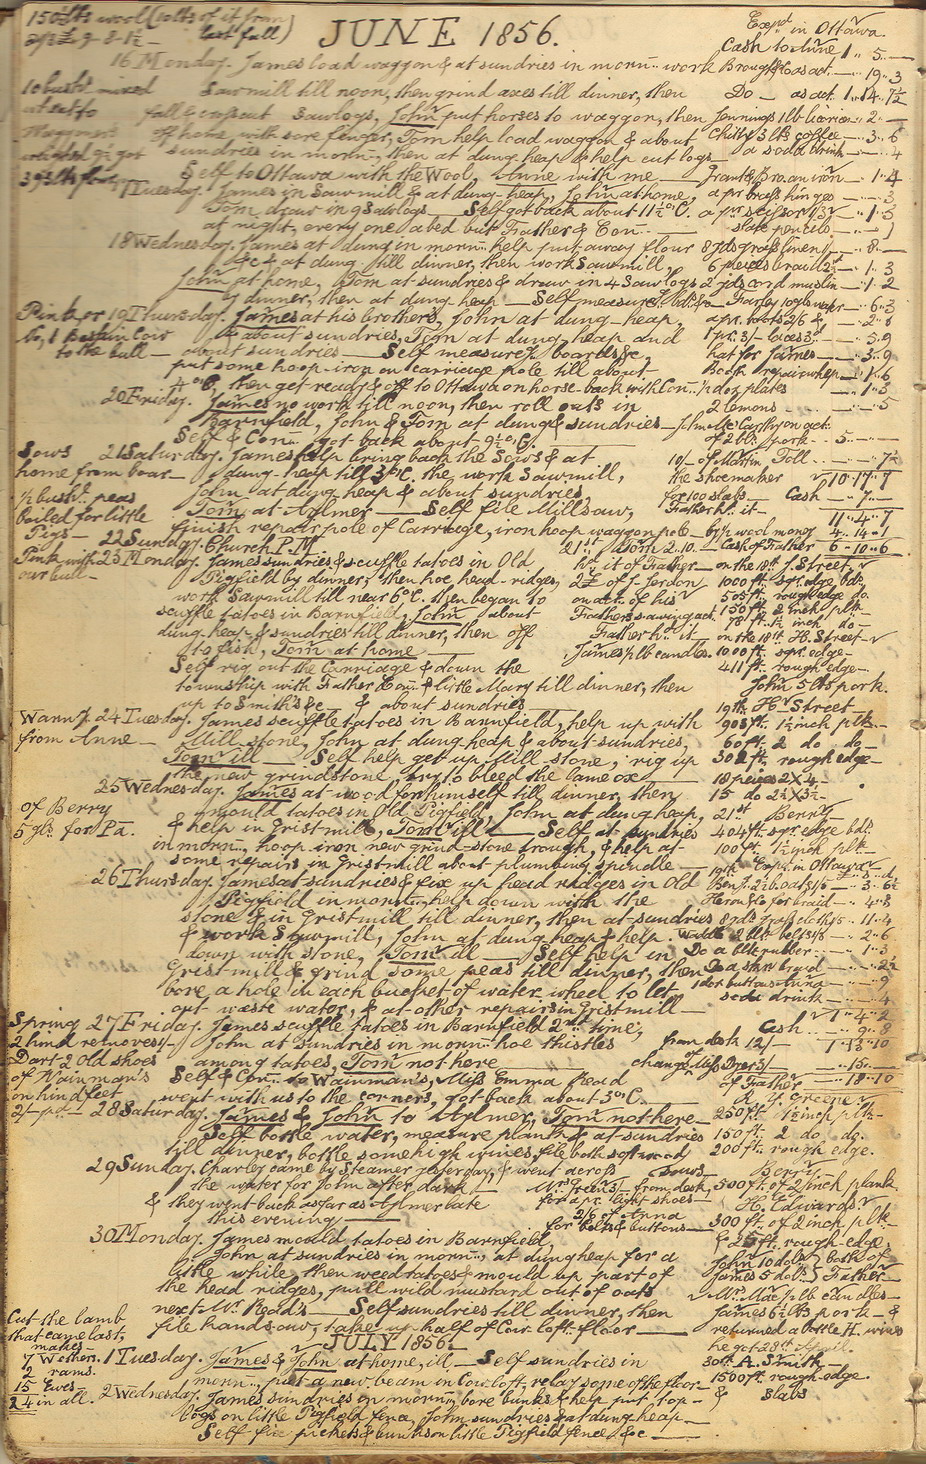 JUNE 1856.
150 lbs wool (10 lbs of it from
last fall)
Expd in Ottawa
Cash to June 1 .. 5 .. —
16 Monday. James load waggon & at sundries in morn:. work
Brought to as act. — .. 19 .. 3
10 bush. mixed
Sawmill till noon, then grind axes till dinner, then
Do — as act. 1 .. 14 .. 7½
fall & crosscut Sawlogs, John put horses to waggon, then
Jennings 1 lb licorice — .. 2 .. —
off home with sore finger, Tom help load waggon & about
Chitty 3 lbs coffee — .. 3 .. 6
sundries in morn:., then at dung heap & help cut logs —
a soda drink — .. — .. 4
Self to Ottawa with the Wool, Anne with me —
1 .. 4
17 Tuesday. James in Sawmill & at dung-heap, John at home,
a pr brass hinges — .. 3
Tom draw in 9 Sawlogs — Self got back about 11½ o'C.
a pr scissors 1/3 — 1 .. 5
at night, every one abed but Father & Con:. —
slate pencils
18 Wednesday. James at dung in morn:. help put away flour
8 yds grass linen — .. 8 .. —
&c & at dung till dinner, then work Sawmill,
6 pieces braid — .. 1 .. 3
John at home, Tom at sundries & draw in 4 Sawlogs
2 yds cord muslin — 1 .. 2
by dinner, then at dung heap — Self measure
6 .. 3
Pink, or
19 Thursday. James at his brothers, John at dung-heap,
apr. boots 2/6 &
No, 1 Bestian Cow
& about sundries, Tom at dung heap and
1 pr. 3/- laces 3d — 5.9
to the bull —
about sundries — Self measure boards &c,
hat for James — .. 3 .. 9
put some hoop-iron on carriage pole till about
Book repair whip — .. 1 .. 6
o'C, then get ready & off to Ottawa on horse-back with Con:.
½ doz plates — .. 1 .. 3
20 Friday. James no work till noon, then roll oats in
2 lemons — .. — .. 5
Barnfield, John & Tom at dung & sundries —
John McCarthy on act.
Self & Con:. got back about 9½ o'C.
of 2 bls. pork — .. 5 .. — .. —
Sows
21 Saturday. James help bring back the Sows & at
10/- of Martin Toll — .. — .. 7½
home from boar —
dung-heap till 3 o'C. the work Sawmill,
the shoemaker 10 .. 17 .. 7
½ bushl. peas
John at dung heap & about sundries,
for 100 slabs — Cash — .. 7 .. —
boiled for little
Tom at Aylmer — Self file Mill saw,
Father hd. it — 11 .. 4 .. 7
Pigs —
finish repair pole of Carriage, iron hoop waggon pole —
by wool money 4 .. 14 .. 1
22 Sunday. Church P.M.
21st Tom 2.10. — Cash of Father 6 .. 10 .. 6
Pink with
23 Monday. James sundries & scuffle tatoes in Old
hd. it of Father — on the 18th J. Street
our bull —
Pigfield by dinner, then hoe head-ridges,
of J. Jordon 1000 ft. sqr. edge bds
work Sawmill till near 6 o'C. then began to
on act. of his 505 ft. rough edge do.
scuffle tatoes in Barnfield, John about
Father's sawing act. 150 ft. 2 inch plk —
dung-heap & sundries till dinner, then off
78 ft. 1½ inch do —
to fish, Tom at home —
Father hd. it — on the 18th H. Street
Self rig out the Carriage & down the
James ½ lb candles. 1000 ft. sqr. edge —
township with Father, Con:. & little Mary till dinner, then
411 ft. rough edge —
up to Smith's &c & about sundries —
John 5 lbs pork.
24 Tuesday. James scuffle tatoes in Barnfield, help up with
19th Hy. Street —
from Anne —
Mill-stone, John at dung heap & about sundries,
908 ft. 1½ inch plk —
Tom ill — Self help get up Mill-stone, rig up
60 ft. 2 do do —
the new grindstone, try to bleed the lame ox —
302 ft. rough edge —
25 Wednesday. James at wood for himself till dinner, then
18 pieces 2 X 4 —
mould tatoes in Old Pigfield, John at dung heap,
15 do 2½ X 3½ —
of Berry
& help in Gristmill, Tom ill — Self at sundries
21st Berry
5 gls. for Pa.
in morn:., hoop-iron new grind-stone trough, & help at
404 ft. sqr. edge bds.
some repairs in Gristmill about plumbing spindle —
100 ft. 1½ inch plk —
26 Thursday. James at sundries & fix up head ridges in Old
19th Expd in Ottawa
Pigfield in morn:., help down with the
3 .. 6½
stone & in Gristmill till dinner, then at sundries
for braid — .. 4 .. 8
& work Sawmill, John at dung-heap & help
11 .. 4
down with stone, Tom ill — Self help in
2 blk belts — .. 2 .. 6
Gristmill & grind some peas till dinner, then
Do a blk rubber — .. 1 .. 3
bore a hole in each bucket of water wheel to let
1 doz buttons Anna — .. — .. 9
out waste water, & at other repairs in Gristmill —
soda drink — .. — .. 4
Spring
27 Friday. James scuffle tatoes in Barnfield 2nd time,
1 .. 4 .. 2
2 hind removes /-
John at sundries in morn:. hoe thistles
Cash — .. 9 .. 8
Dart-2 old shoes
among tatoes, Tom not here
from desk 12/- 1 .. 13 .. 10
of Wainman's
Self & Con:. to Wainman's, Miss Emma Read
change of Miss Dyer 3/ — .. 15 .. —
on hind feet
went with us to the corners, got back about 5 o'C. —
of Father — .. 18 .. 10
28 Saturday. James & John to Aylmer, Tom not here —
R. Y. Greene
Self bottle water, measure plank & at sundries
250 ft. 1½ inch plk —
till dinner, bottle some high wines, file both
150 ft. 2 do do.
saws —
200 ft. rough edge.
29 Sunday. Charley came by Steamer yesterday, & went across
Berry
the water for John after dark —
Mrs Green 5/- from desk,
500 ft. of 2 inch plank
& they went back as far as Aylmer late
for a pr. light shoes —
H. Edwards
this evening —
2/6 of Anna
300 ft. of 2 inch plk —
for belts & buttons —
& 25 ft. rough-edge,
30 Monday. James mould tatoes in Barnfield,
John at sundries in morn:., at dung heap for a
John 10 dols } both of
little while, then weed tatoes & mould up part of
James 5 dols } Father
the head ridges, pull wild mustard out of oats
½ lb candles —
next Mr. Read's — Self sundries till dinner, then
James 6½ lbs pork — &
file handsaw, take up half of Cow loft floor —
returned a bottle H. wines
Cut the lamb
that came last,
makes —
7 Wethers.
2 rams.
15 Ewes
24 in all.
JULY 1856.
he got 28th April.
1 Tuesday. James & John at home, ill — Self sundries in
30th A. Smith —
morn:., put a new beam in Cow loft, relay some of the floor —
1500 ft. rough-edge.
2 Wednesday. James sundries in morn:., bore bunks & help put top-
& Slabs
logs on little Pigfield fence, John sundries & at dung heap —
Self fix pickets & bunks on little Pigfield fence &c —